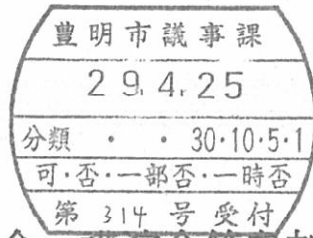 豊明市議事課
29.4.25
分類 ・ ・ 30・10・5・1
可・否・一部否・一時否
第 314 号 受付